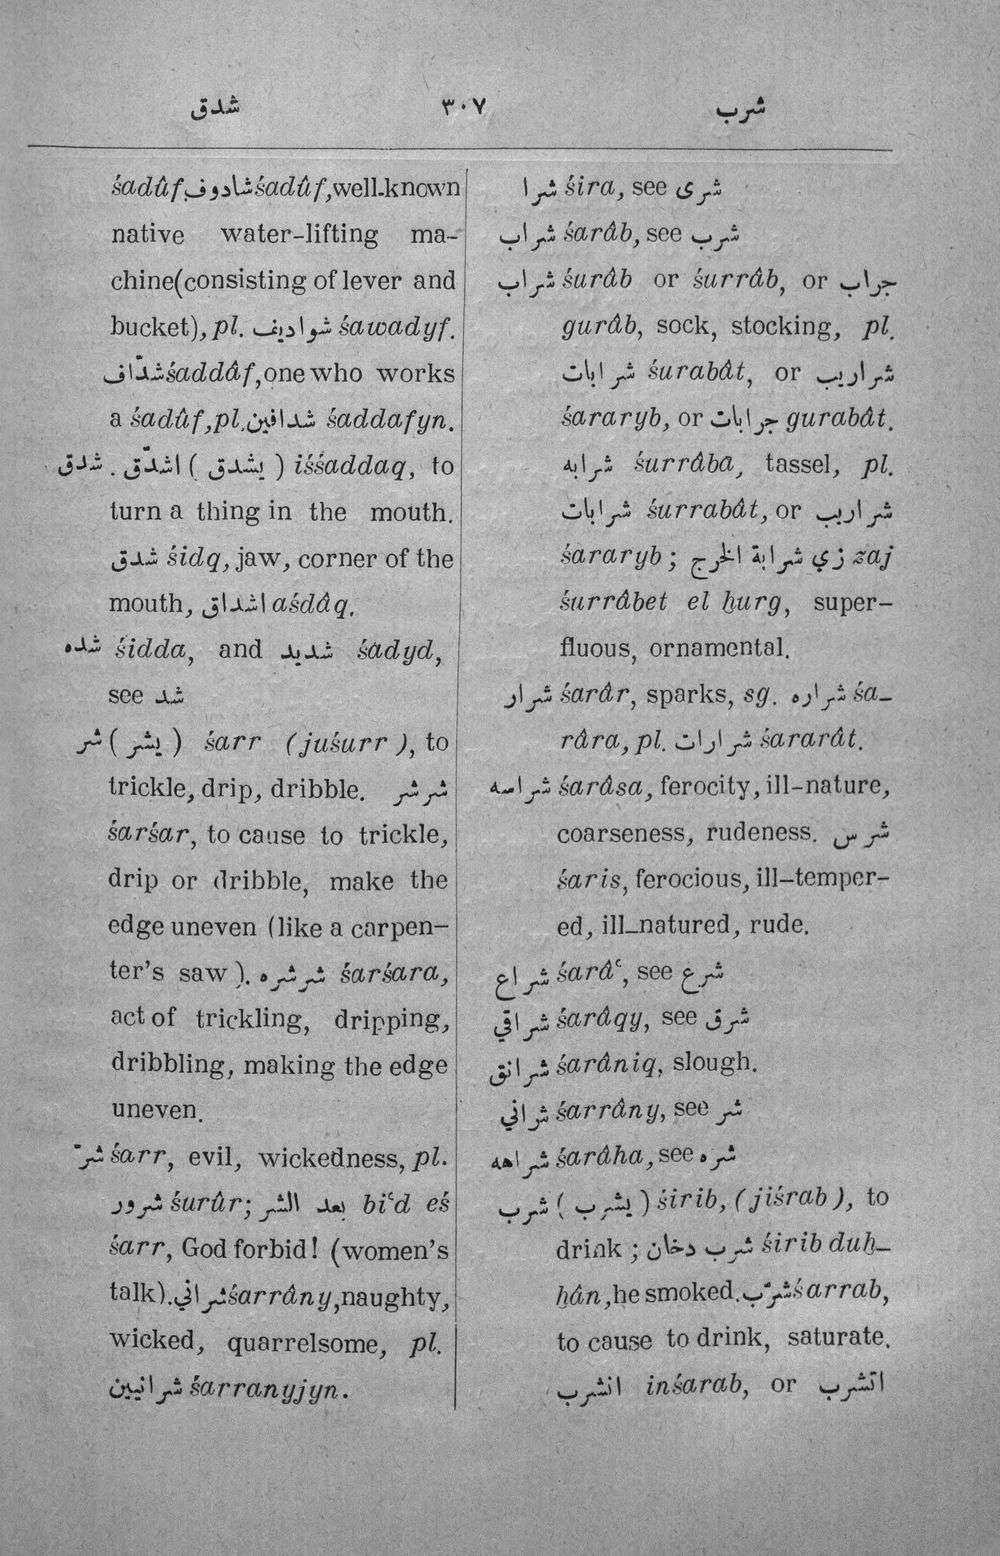 شدق ٣٠٧ شرب
śadûf شادوف śadûf, well-known
native water-lifting ma-
chine (consisting of lever and
bucket), pl. شواديف śawadyf.
شدّاف śaddâf, one who works
a śadûf, pl. شدافين śaddafyn.
شدق . اشدّق ( يشدق ) iśśaddaq, to
turn a thing in the mouth.
شدق śidq, jaw, corner of the
mouth, اشداق aśdâq.
شده śidda, and شديد śadyd,
see شد
شر ( يشر ) śarr (juśurr), to
trickle, drip, dribble. شرشر
śarśar, to cause to trickle,
drip or dribble, make the
edge uneven (like a carpen-
ter's saw). شرشره śarśara,
act of trickling, dripping,
dribbling, making the edge
uneven.
شرّ śarr, evil, wickedness, pl.
شرور śurûr; بعد الشر biʿd eś
śarr, God forbid! (women's
talk). شراني śarrâny, naughty,
wicked, quarrelsome, pl.
شرانيين śarranyjyn.
شرا śira, see شرى
شراب śarâb, see شرب
شراب śurâb or śurrâb, or جراب
gurâb, sock, stocking, pl.
شرابات śurabât, or شراريب
śararyb, or جرابات gurabât.
شرابه śurrâba, tassel, pl.
شرابات śurrabât, or شراريب
śararyb ; زي شرابة الخرج zaj
śurrâbet el ḫurg, super-
fluous, ornamental.
شرار śarâr, sparks, sg. شراره śa-
râra, pl. شرارات śararât.
شراسه śarâsa, ferocity, ill-nature,
coarseness, rudeness. شرس
śaris, ferocious, ill-temper-
ed, ill-natured, rude.
شراع śarâʿ, see شرع
شراقي śarâqy, see شرق
شرانق śarâniq, slough.
شراني śarrâny, see شر
شراهه śarâha, see شره
شرب ( يشرب ) śirib, (jiśrab), to
drink ; شرب دخان śirib duḫ-
ḫân, he smoked. شرّب śarrab,
to cause to drink, saturate.
انشرب inśarab, or اتشرب